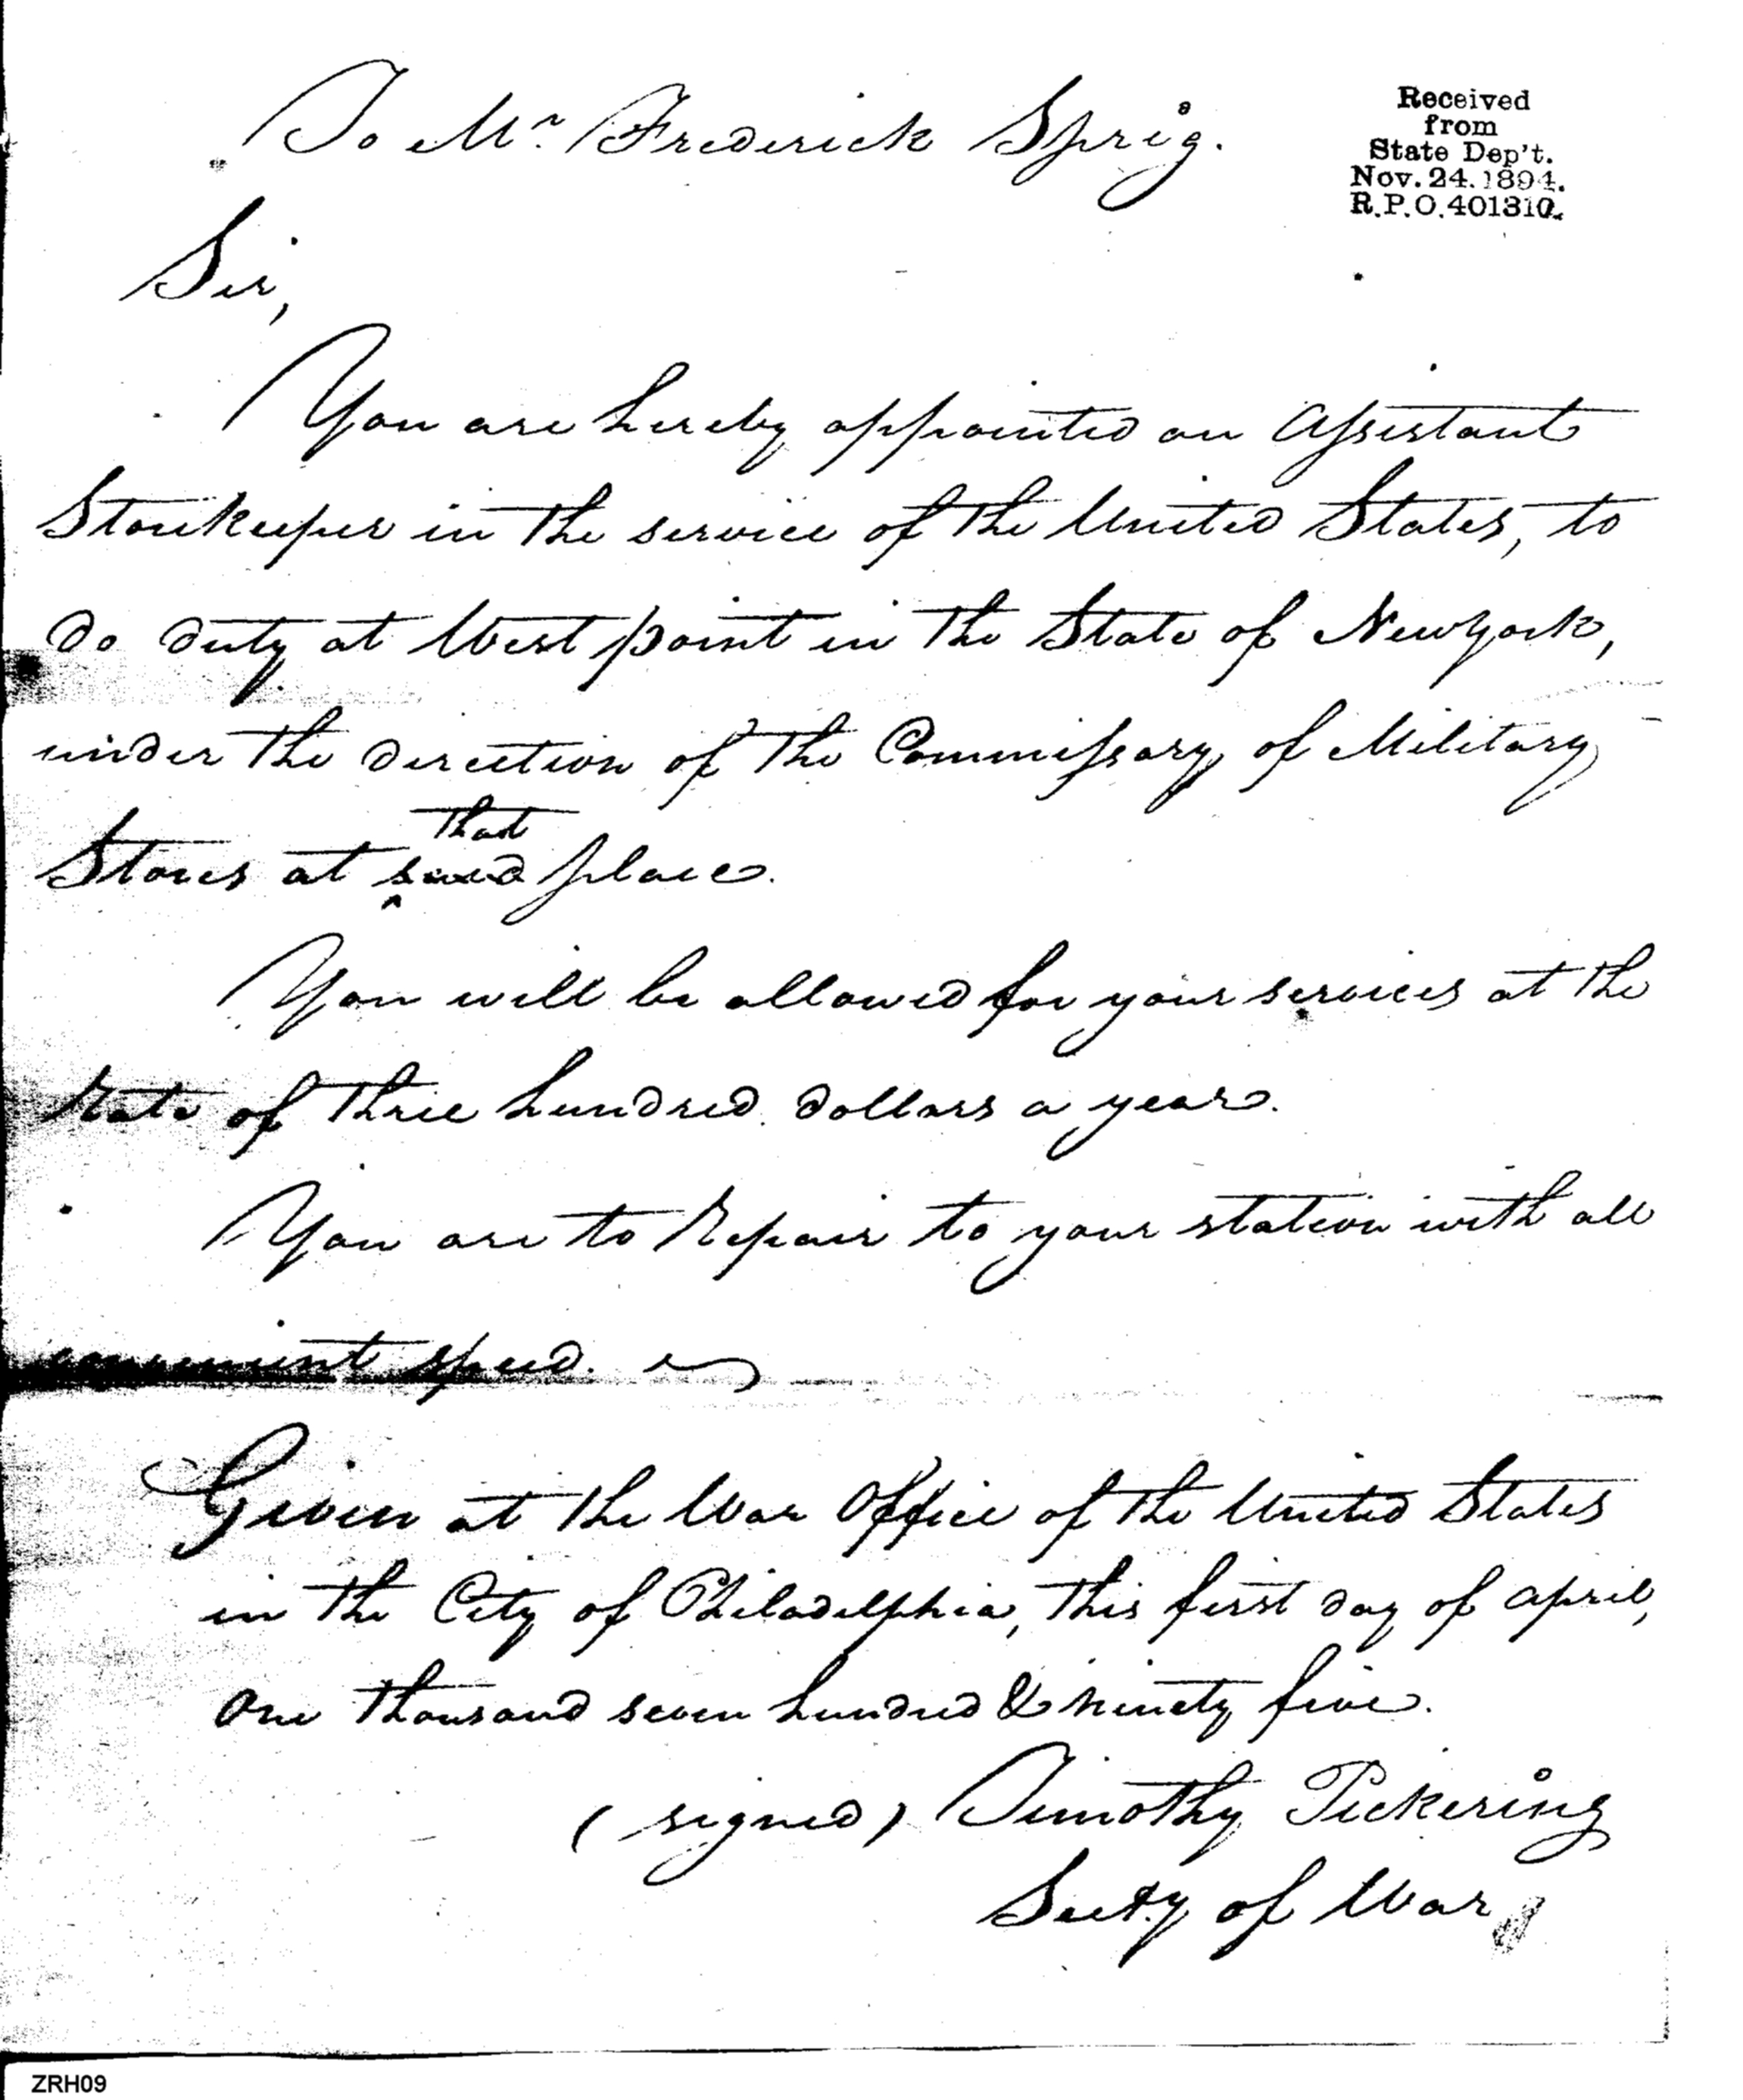 To Mr. Frederick Sprig.
Received
from
State Dep't.
Nov. 24. 1894.
R.P.O. 401310.
Sir,
You are hereby appointed an Assistant
Storekeeper in the service of the United States, to
do duty at West point in the State of Newyork,
under the direction of the Commissary of Military
that
Stores at said place.
You will be allowed for your services at the
rate of three hundred dollars a year.
You are to repair to your station with all
convenient speed.
Given at the War Office of the United States
in the City of Philadelphia, this first day of april,
One thousand seven hundred & ninety five.
(signed) Timothy Pickering
Secty of War
ZRH09